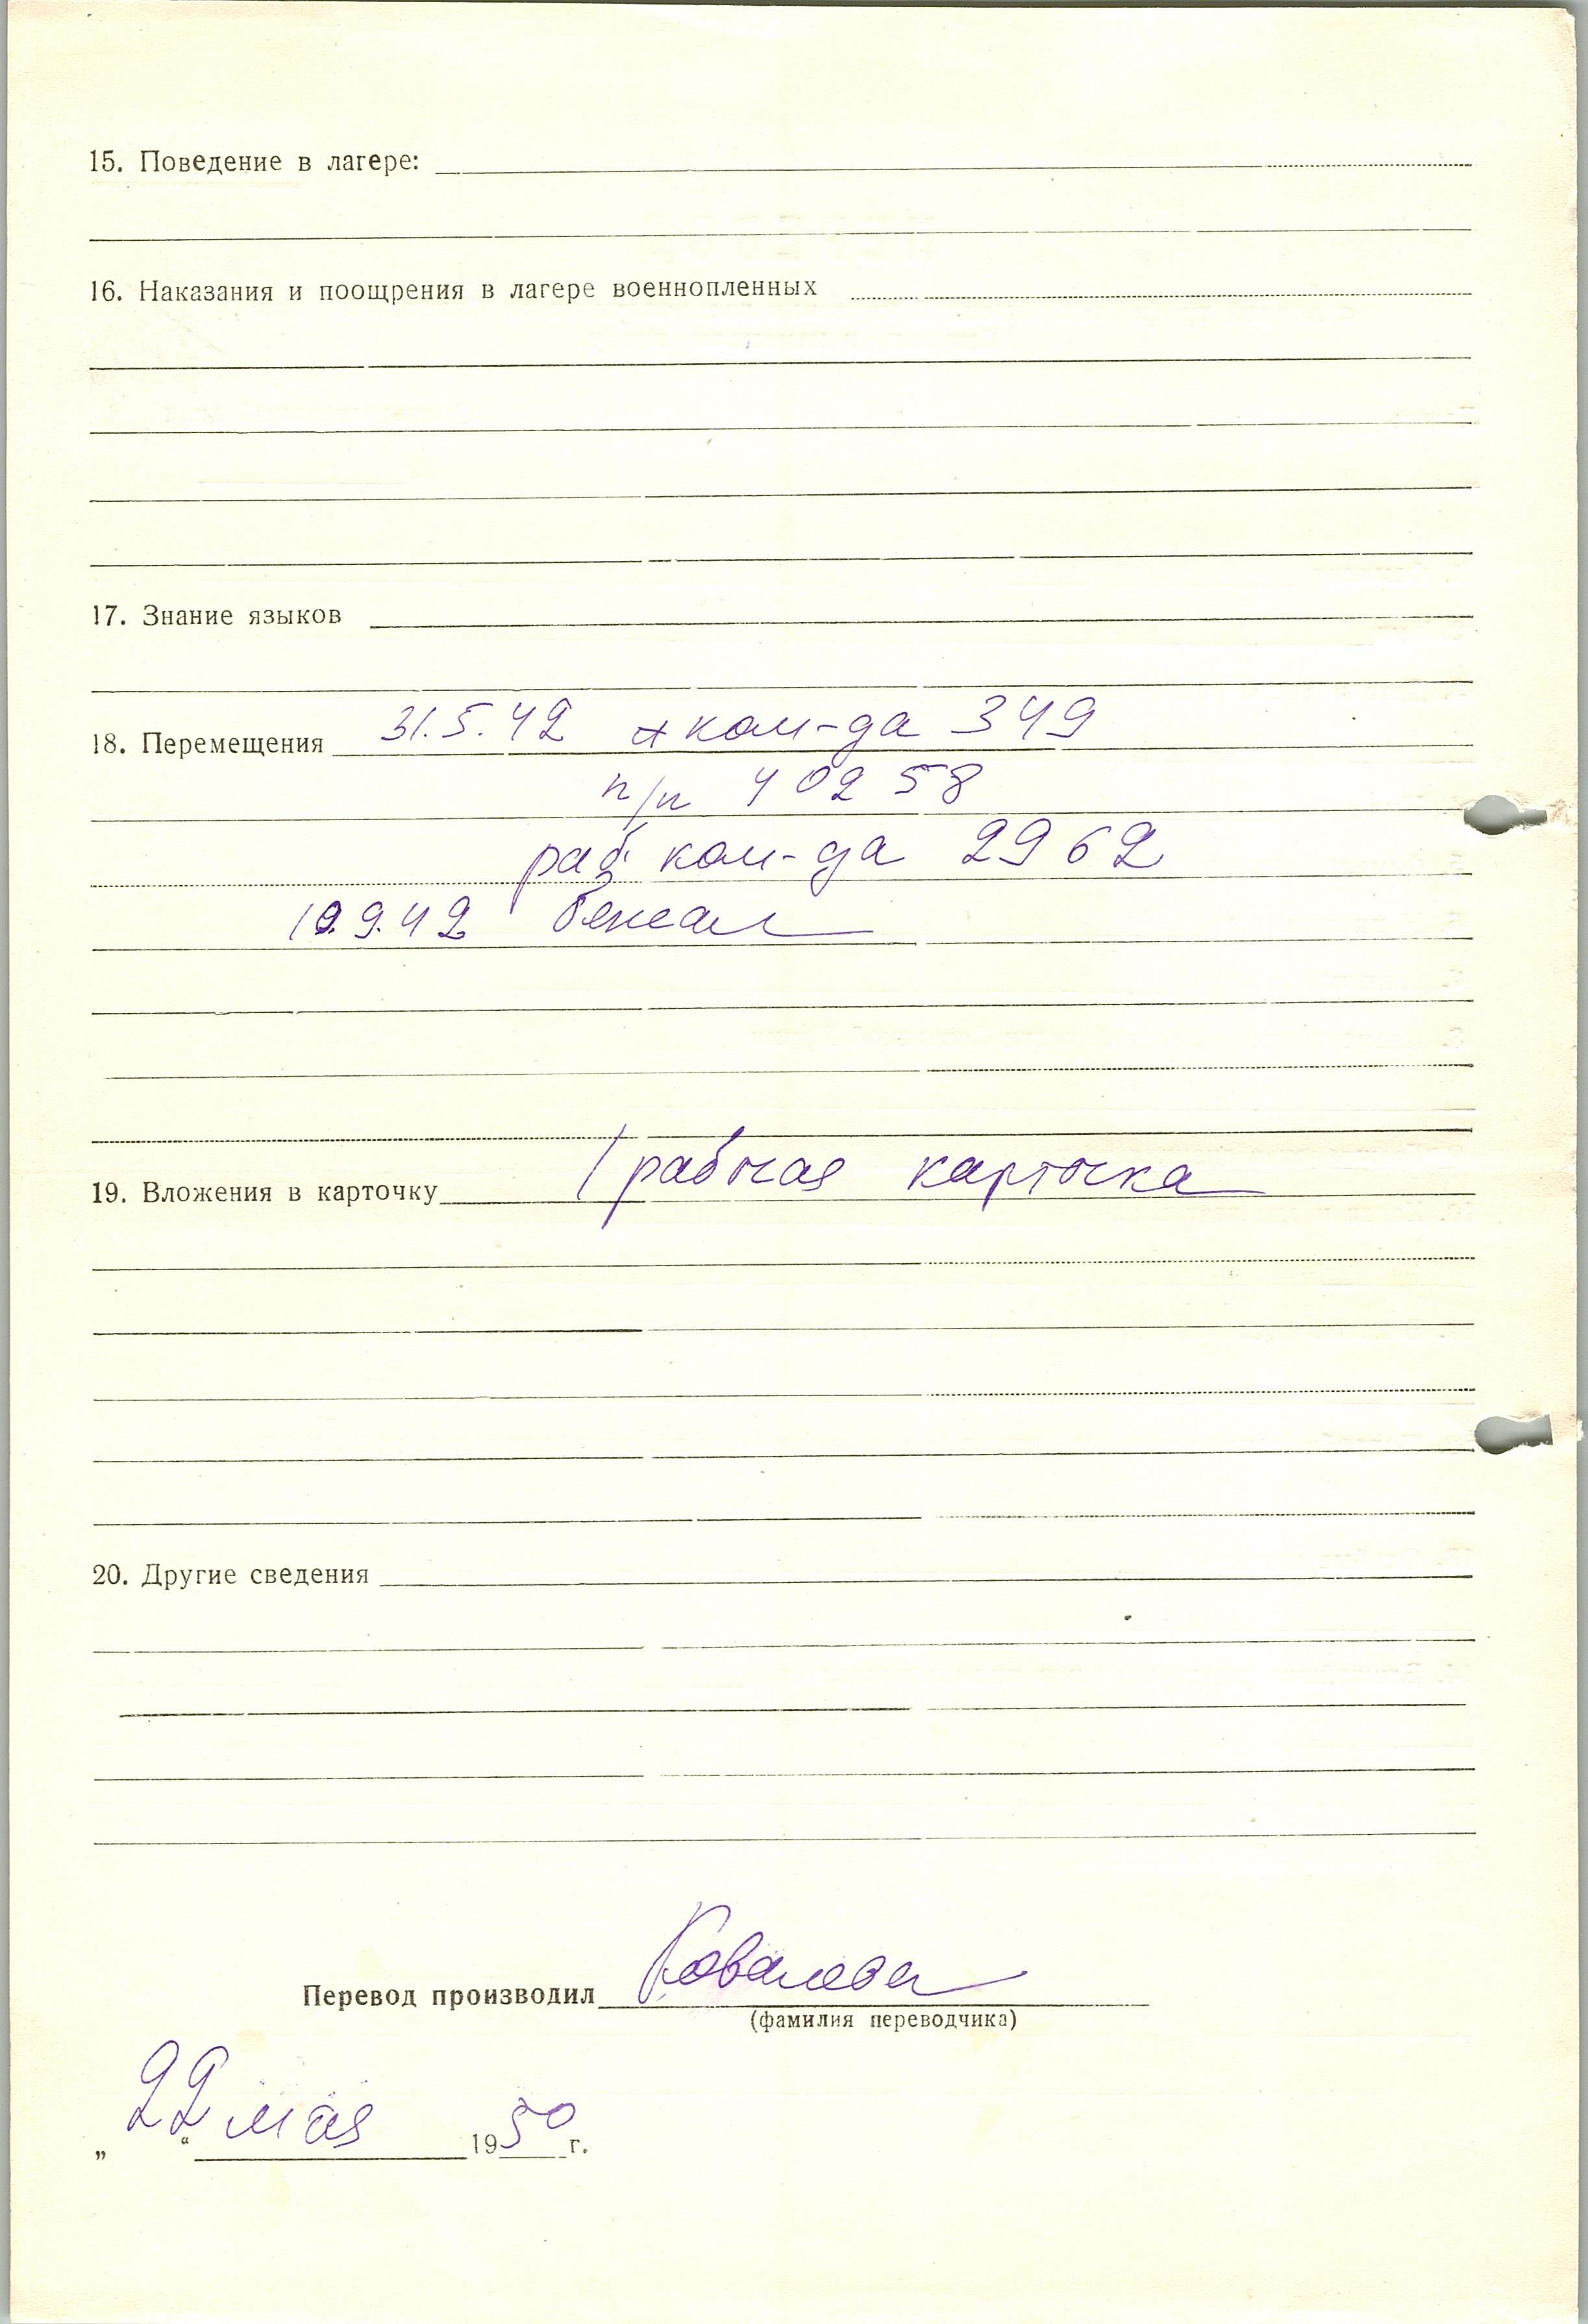 15. Поведение в лагере:
16. Наказания и поощрения в лагере военнопленных
17. Знание языков
18. Перемещения 31.5.42 ком-да 349
п/п 40258
раб. ком-да 2962
10.9.42 бежал
19. Вложения в карточку 1 рабочая карточка
20. Другие сведения
Перевод производил Ковалева
(фамилия переводчика)
„22“ мая 1950 г.